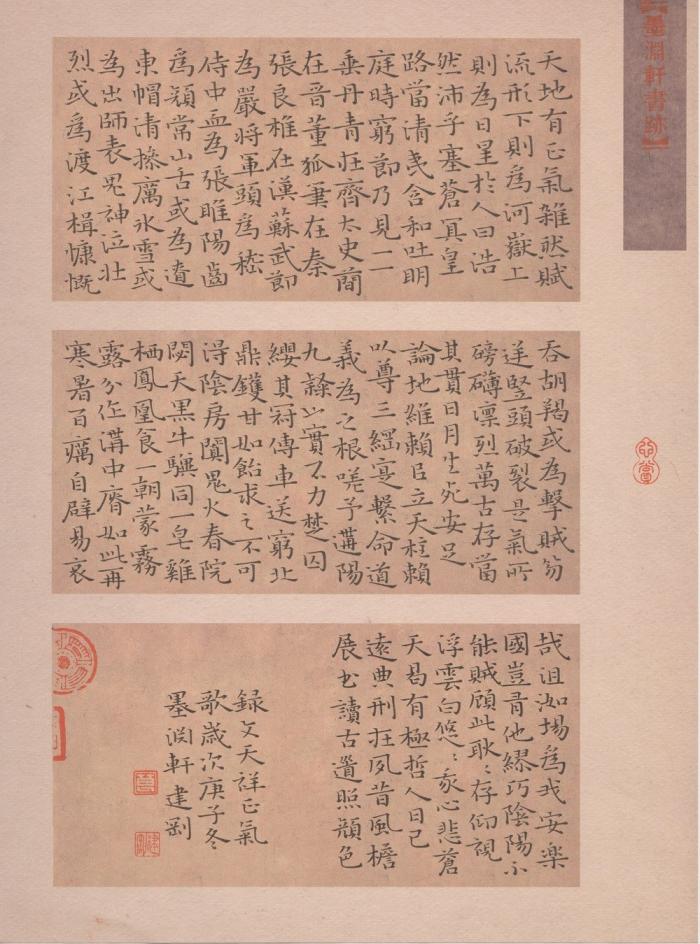 墨淵軒書跡】
天地有正氣雜然賦
流形下則為河嶽上
則為日星於人曰浩
然沛乎塞蒼冥皇
路當清夷含和吐明
庭時窮節乃見一一
垂丹青在齊太史簡
在晉董狐筆在秦
張良椎在漢蘇武節
為嚴將軍頭為嵇
侍中血為張睢陽齒
為顏常山舌或為遼
東帽清操厲冰雪或
為出師表鬼神泣壯
烈或為渡江楫慷慨
吞胡羯或為擊賊笏
逆豎頭破裂是氣所
磅礴凜烈萬古存當
其貫日月生死安足
論地維賴以立天柱賴
以尊三綱寔繫命道
義為之根嗟予遘陽
九隸也實不力楚囚
纓其冠傳車送窮北
鼎鑊甘如飴求之不可
得陰房闃鬼火春院
閟天黑牛驥同一皂雞
栖鳳凰食一朝蒙霧
露分作溝中瘠如此再
寒暑百癘自辟易哀
哉沮洳場為我安樂
國豈有他繆巧陰陽不
能賊顧此耿〻存仰視
浮雲白悠〻我心悲蒼
天曷有極哲人日已
遠典刑在夙昔風檐
展書讀古道照顏色
錄文天祥正氣
歌歲次庚子冬
墨淵軒建剛